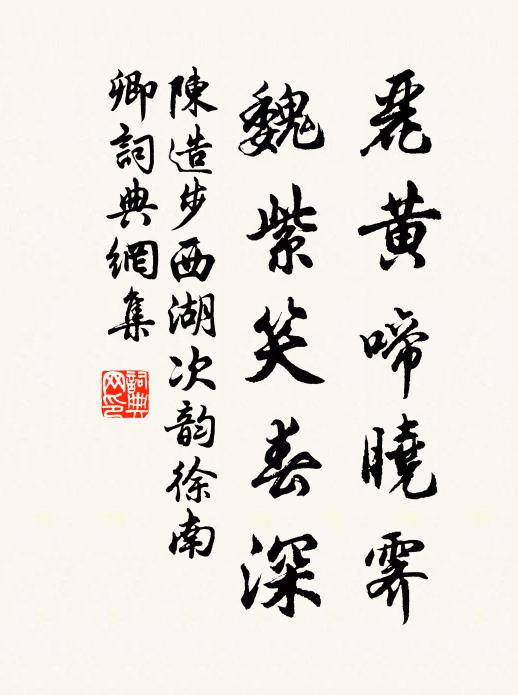 麗黄啼曉霽
魏紫笑春深
陳造步西湖次韵徐南
卿詞典網集
詞典网印